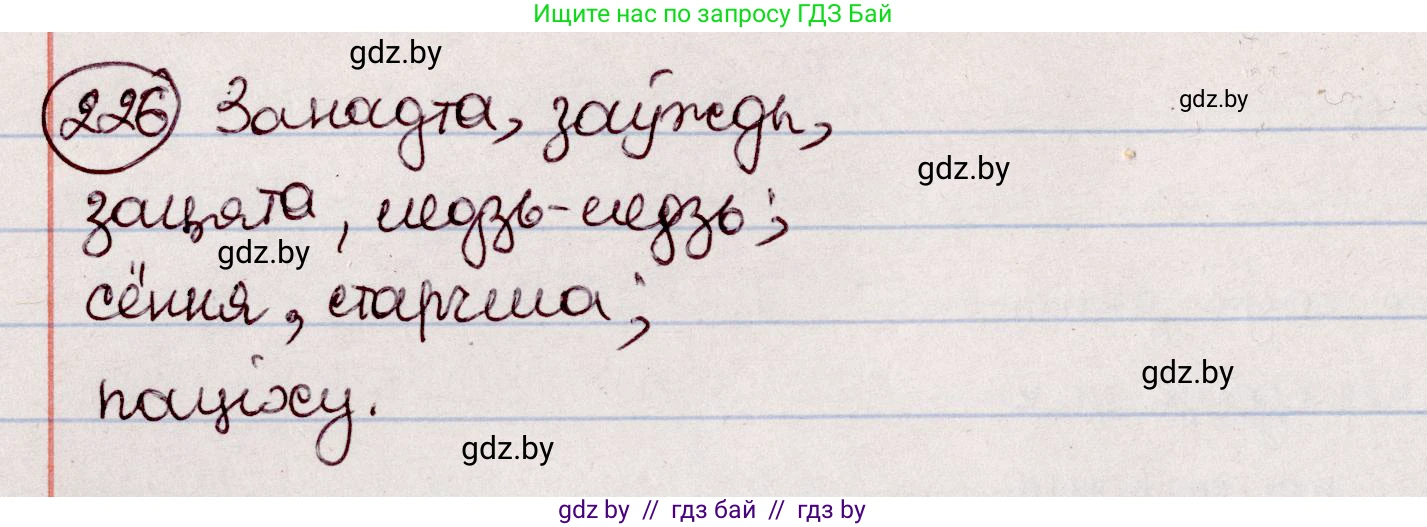 Ищите нас по запросу ГДЗ Бай
gdz.by
226 Занадта, заўжды,
gdz.by
gdz.by
зацята, ледзь-ледзь;
gdz.by
сёння, старчма;
gdz.by
паціху.
gdz.by
gdz.by // гдз бай // гдз by